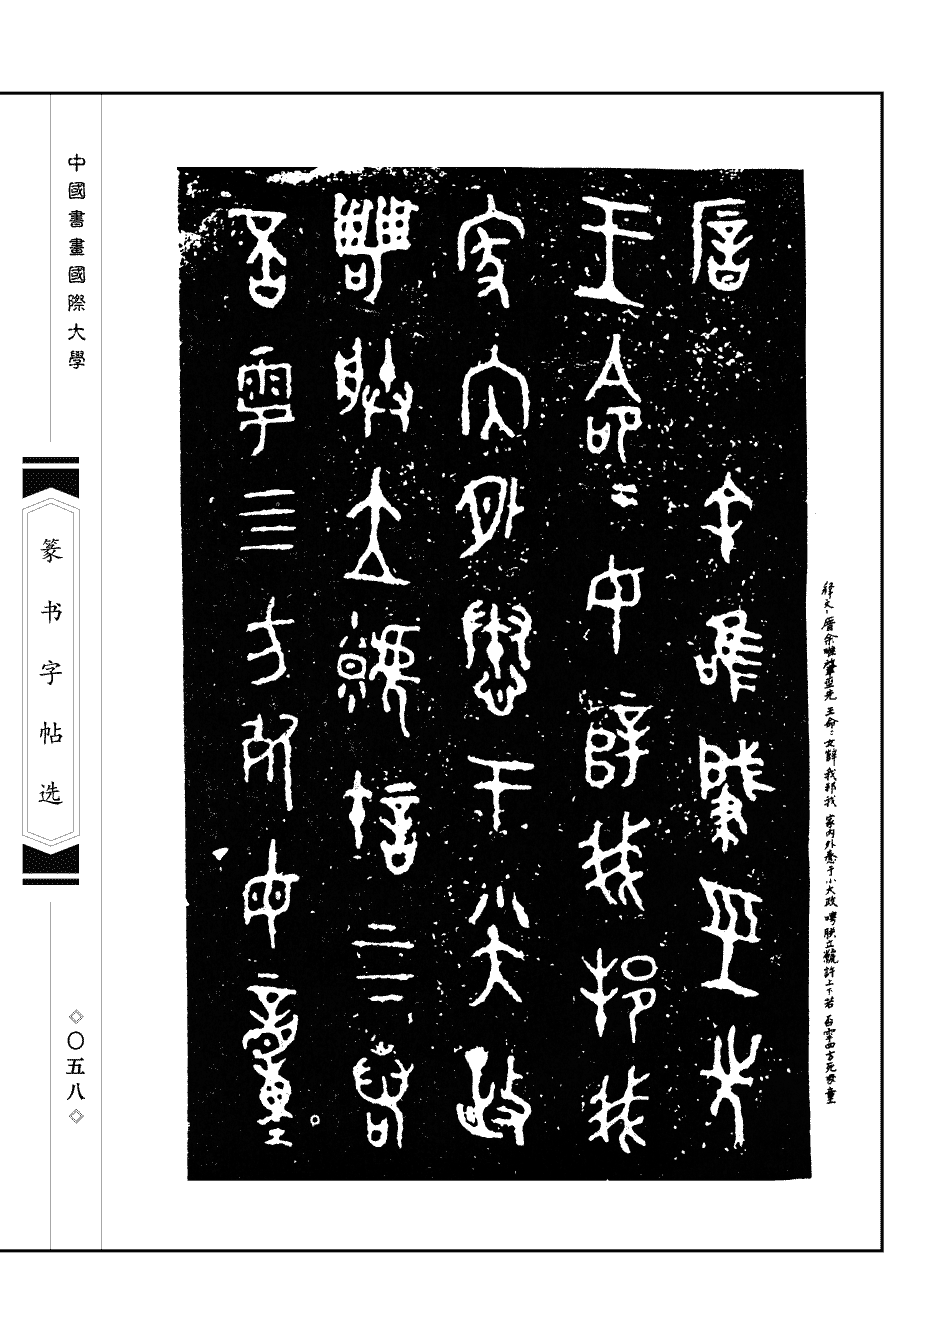 释文：厝余唯肇巠先 王命二女辥我邦我 家内外憃于小大政 甹朕立虩許上下若 否雩四方死毋童
厝余唯肇巠先
王命二女辥我邦我
家内外憃于小大政
甹朕立虩許上下若
否雩四方死毋童
中國書畫國際大學
篆书字帖选
〇五八